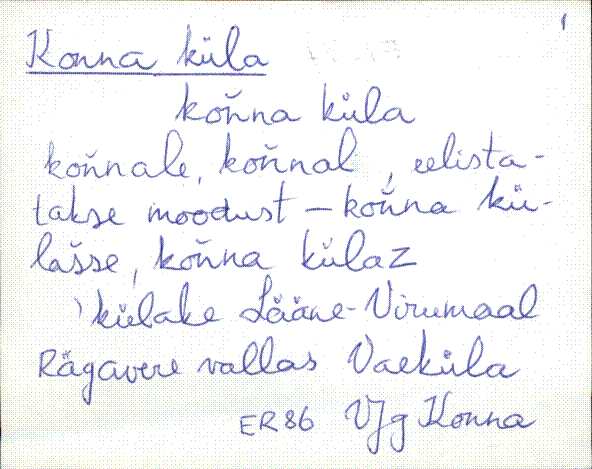 1
Konna küla
koňna küla
koňnale, koňnal, eelista-
takse moodust – koňna kü-
lašse, koňna külaz
külake Lääne-Virumaal
Rägavere vallas Vaeküla
ER86 VJg Konna